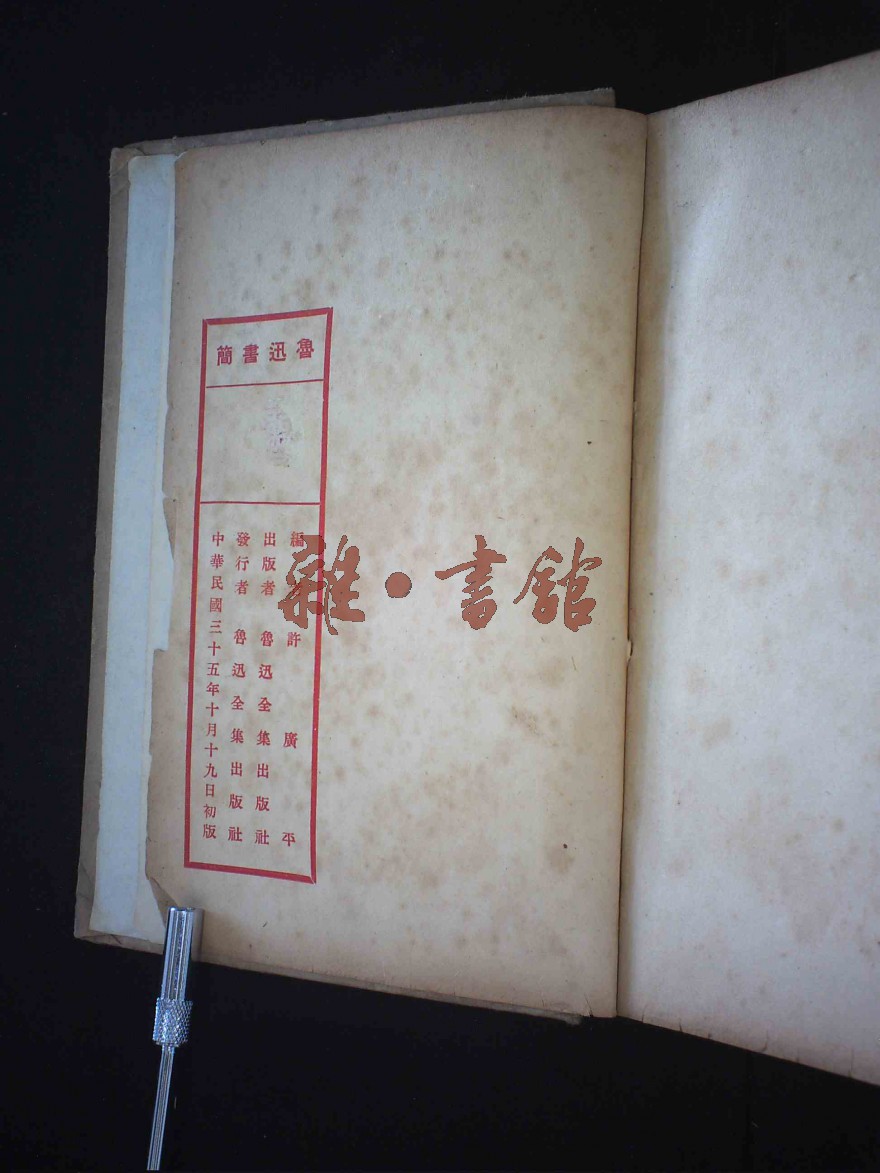 魯迅書簡
編者 許廣平
出版者 魯迅全集出版社
發行者 魯迅全集出版社
中華民國三十五年十月十九日初版
雜·書館